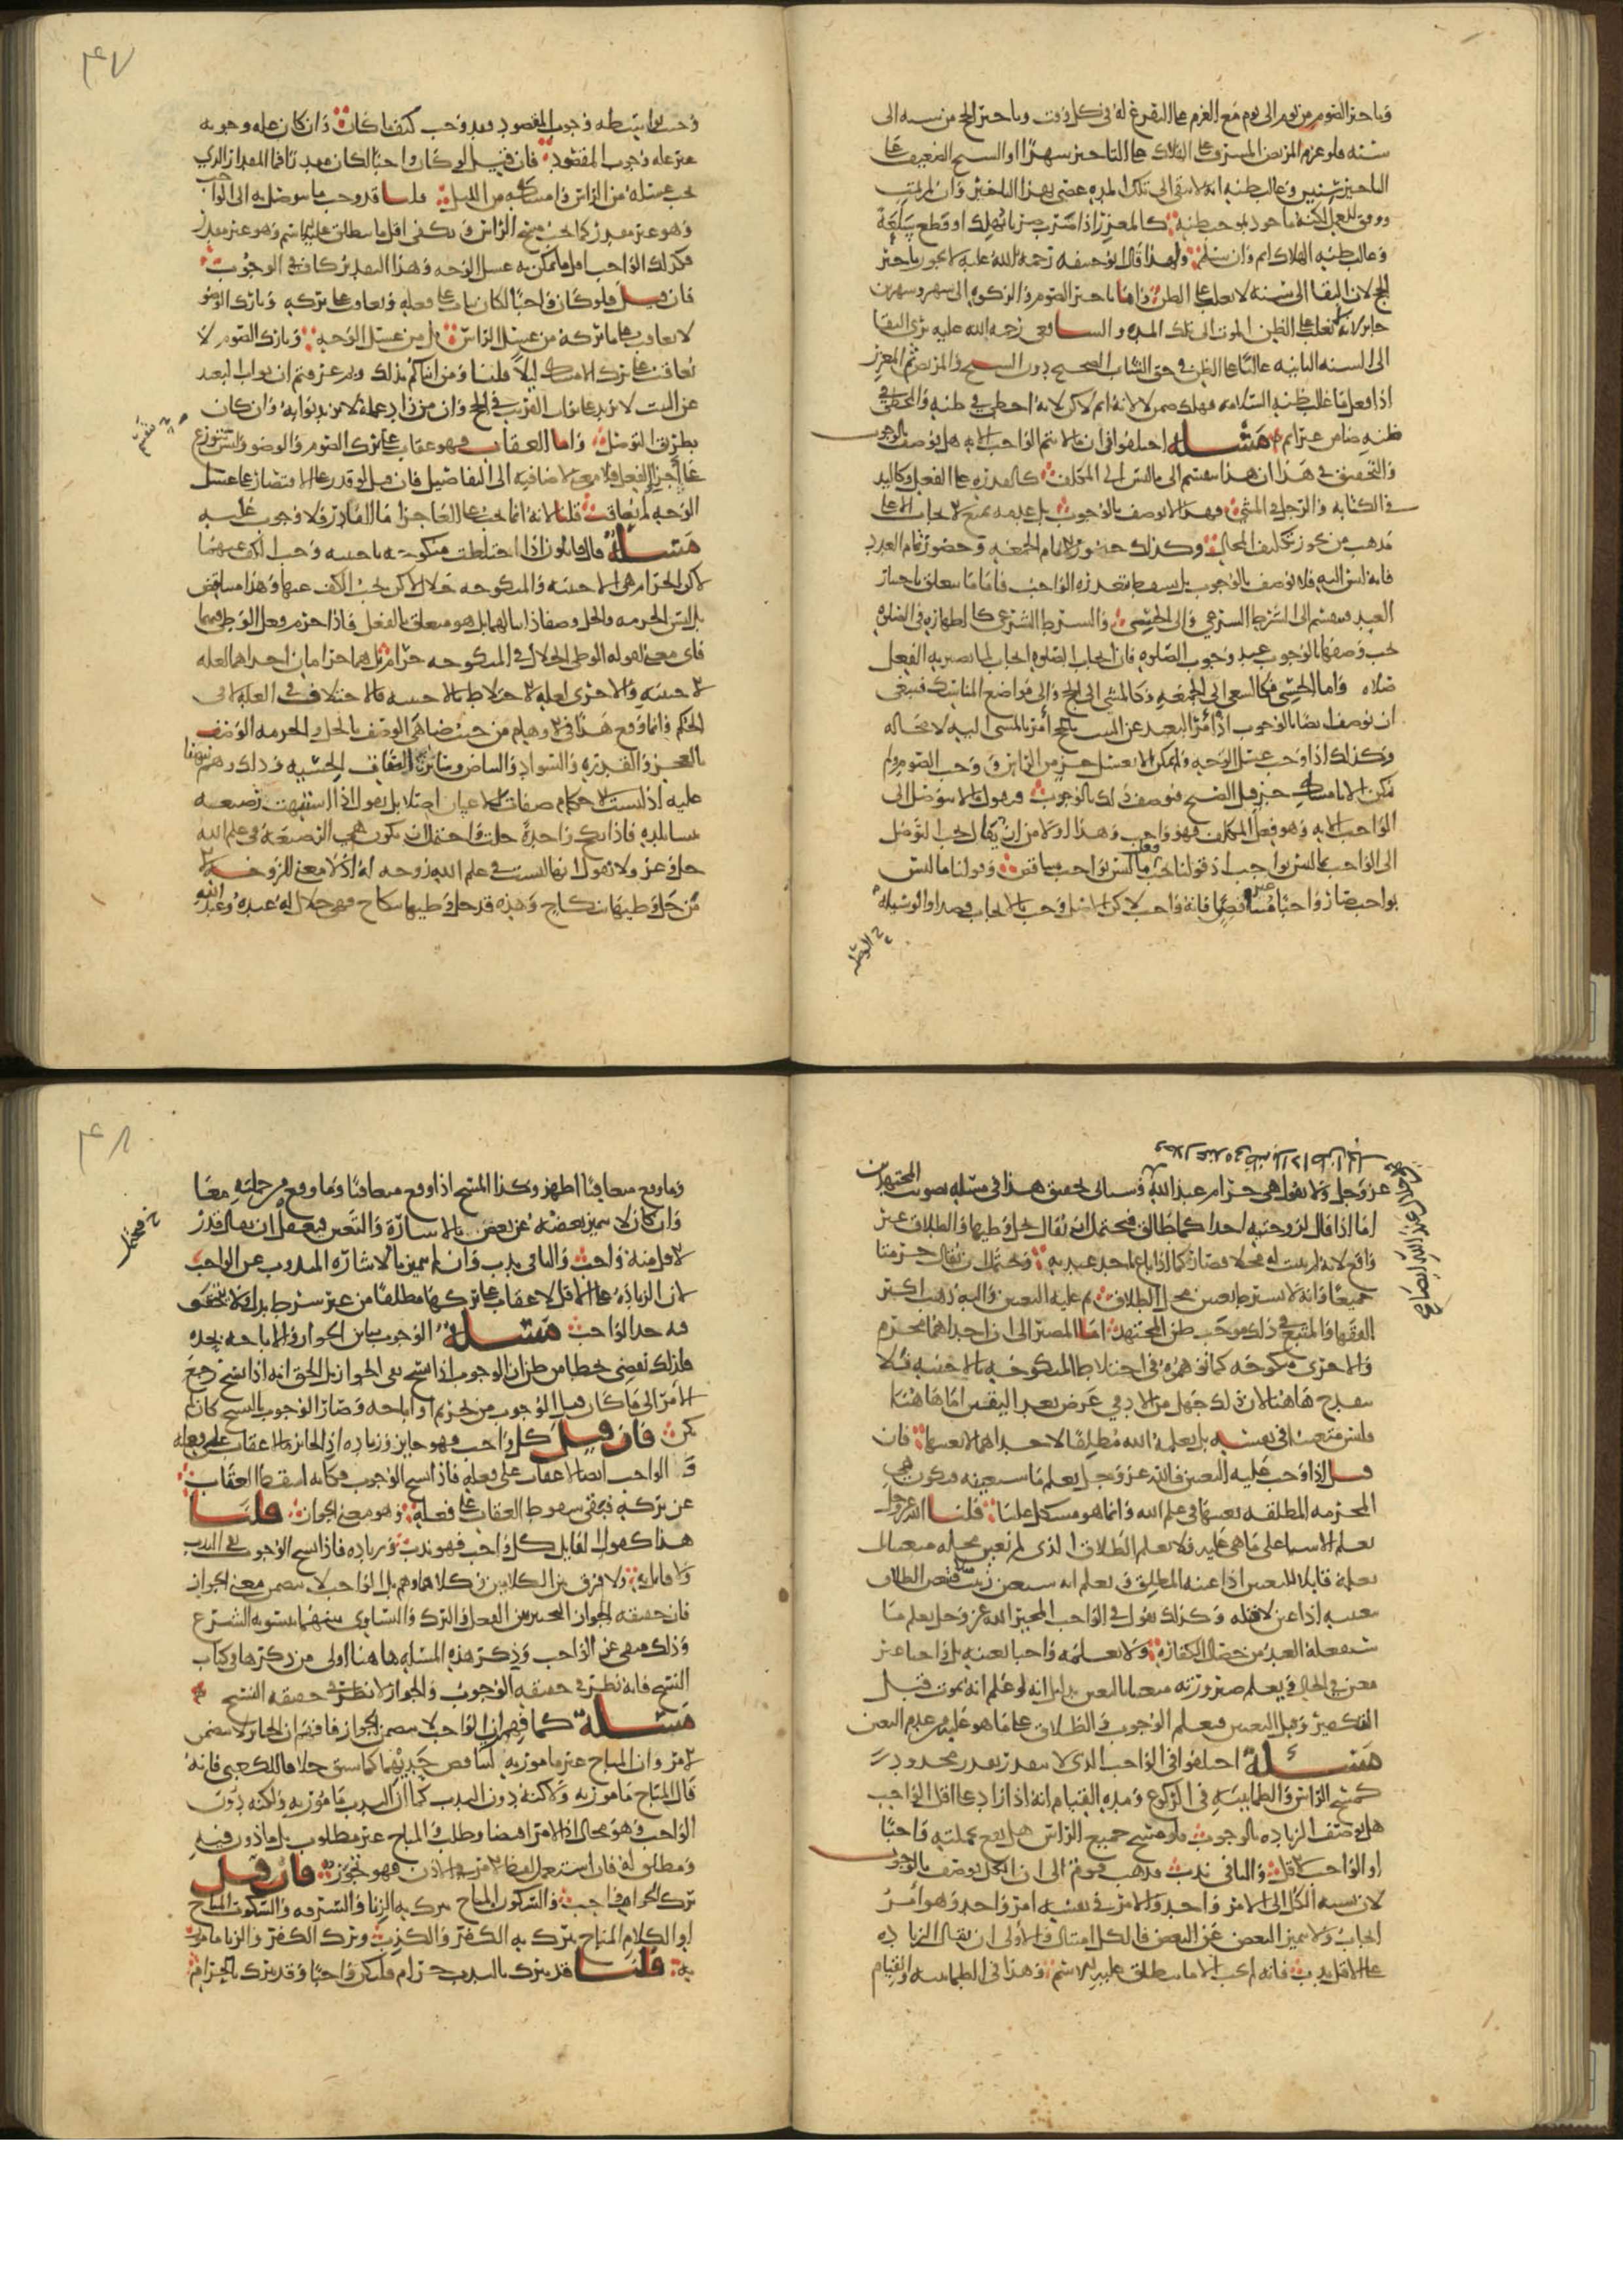 وتاخير الصوم من يوم الى يوم مع العزم على التفرغ له في كل وقت وتاخير الحج من سنه الى
سنه فلو عزم المريض المشرف على الهلاك على التاخير شهرا او الشيخ الضعيف على
التاخير سنين وغالب ظنه انه لا يبقى الى تلك المده عصى بهذا التاخير وان لم يمت
ووفق للعمل لكنه ماخوذ بموجب ظنه كالمعزر اذا ضرب ضربا يهلك او قطع سلعة
وغالب ظنه الهلاك اثم وان سلم ولهذا قال ابو حنيفه رحمة الله عليه لا يجوز تاخير
الحج لان البقا الى سنه لا يغلب على الظن واما تاخير الصوم والزكوه الى شهر وشهرين
جايز لانه لا يغلب على الظن الموت الى تلك المده والشافعي رحمه الله عليه يرى البقا
الى السنه الثانيه غالبا على الظن في حق الشاب الصحيح دون الشيخ والمريض ثم المعزر
اذا فعل ما غالب ظنه السلامه فهلك ضمن لا لانه اثم لاكن لانه اخطي في ظنه والمخطي في
ظنه ضامن غير اثم مسئله اختلفوا في ان ما لا يتم الواجب الا به هل يوصف بالوجوب
والتحقيق في هذا ان هذا ينقسم الى ما ليس الى المكلف كالقدره على الفعل وكاليد
في الكتابه والرجل في المشي فهذا لا يوصف بالوجوب بل عدمه يمنع الايجاب الا على
مذهب من يجوز تكليف المحال وكذلك حضور الامام الجمعه وحضور تمام العدد
فانه ليس اليه فلا يوصف بالوجوب بل يسقط بتعذره الواجب فاما ما يتعلق باختيار
العبد فينقسم الى الشرط الشرعي والى الحسي والشرط الشرعي كالطهاره في الصلوه
يجب وصفها بالوجوب عند وجوب الصلوه فان ايجاب الصلوه ايجاب لما يصير به الفعل
صلاه واما الحسي فكالسعي الى الجمعه وكالمشي الى الحج والى مواضع المناسك فينبغي
ان يوصف ايضا بالوجوب اذ امر البعيد عن البيت بالحج امر بالمشي اليه لا محاله
وكذلك اذا وجب غسل الوجه ولم يمكن الا بغسل جز من الراس ووجب الصوم ولم
يمكن الا بامساك جز قبل الصبح فيوصف ذلك بالوجوب فنقول ما لا يتوصل الى
الواجب الا به وهو فعل المكلف فهو واجب وهذا اولا من ان يقال يجب التوصل
الى الواجب بما ليس بواجب اذ قولنا يجب فعل ما ليس بواجب متناقض وقولنا ما ليس
بواجب صار واجبا غير متناقض فانه واجب لاكن الاصل وجب بالايجاب قصدا والوسيله
٤٧
وجبت بواسطه وجوب المقصود وقد وجب كيف ما كان وان كان عله وجوبه
غير عله وجوب المقصود فان قيل لو كان واجبا لكان مقدرا فما المقدار الذي
يجب غسله من الراس وامساكه من الليل قلنا قد وجب ما يتوصل به الى الواجب
وهو غير مقدر كما يجب مسح الراس ويكفى اقل ما ينطلق عليه الاسم وهو غير مقدر
فكذلك الواجب اقل ما يمكن به غسل الوجه وهذا التقدير كاف في الوجوب
فان قيل فلو كان واجبا لكان يثاب على فعله ويعاقب على تركه وتارك الوضو
لا يعاقب على ما تركه من غسل الراس بل من غسل الوجه وتارك الصوم لا
يعاقب على ترك الامساك ليلا قلنا ومن انباكم بذلك ومن اين عرفتم ان ثواب البعيد
عن البيت لا يزيد على ثواب القريب في الحج وان من زاد عمله لا يزيد ثوابه وان كان
بطريق التوصل واما العقاب فهو عقاب على ترك الصوم والوضو وليس يتوزع
على اجزا الفعل فلا معنى لاضافته الى التفاصيل فان قيل لو قدر على الاقتصار على غسل
الوجه لم يعاقب قلنا لانه انما يجب على العاجز اما القادر فلا وجوب عليه
مسئلة قال قايلون اذا اختلطت منكوحه باجنبيه وجب الكف عنهما
لاكن الحرام هي الاجنبيه والمنكوحه حلال لاكن يجب الكف عنها وهذا متناقض
بل ليس الحرمه والحل وصفا ذاتيا لهما بل هو متعلق بالفعل فاذا حرم فعل الوطي فيهما
فاي معنى لقوله الوطي الحلال في المنكوحه حرام بل هما حرامان احداهما لعله
الاجنبيه والاخرى لعله الاختلاط بالاجنبيه فالاختلاف في العله لا في
الحكم وانما وقع هذا في الاوهام من حيث ضاهى الوصف بالحل والحرمه الوصف
بالعجز والقدره والسواد والبياض وساير الصفات الحسيه وذلك وهم نبهنا
عليه اذ ليست الاحكام صفات للاعيان اصلا بل نقول اذا اشتبهت رضيعه
بنسا بلده فاذا نكح واحدة حلت واحتمل ان تكون هي الرضيعه في علم الله
جل وعز ولا نقول انها ليست في علم الله زوجه له اذ لا معنى للزوجه الا
من حل وطيها بنكاح وهذه قد حل وطيها بنكاح فهي حلال له عنده وعند الله
عز وجل ولا نقول هي حرام عند الله وسياتي تحقيق هذا في مسئله تصويب المجتهدين
اما اذا قال لزوجتيه احداكما طالق فيحتمل ان يقال يحل وطيهما والطلاق غير
واقع لانه لم يبين له محلا فصار كما اذا باع احد عبديه ويحتمل ان يقال حرمتا
جميعا وانه لا يشترط تعيين محل الطلاق ثم عليه التعيين واليه ذهب اكثر
الفقها والمتبع في ذلك موجب ظن المجتهد اما المصير الى ان احداهما محرم
والاخرى منكوحه كما توهموه في اختلاط المنكوحه بالاجنبيه فلا
ينقدح هاهنا لان ذلك جهل من الادمي عرض بعد التعيين اما هاهنا
فليس متعينا في نفسه بل يعلمه الله مطلقا لاحداهما لا بعينها فان
قيل اذا وجب عليه التعيين فالله عز وجل يعلم ما سيعينه فتكون هي
المحرمه المطلقه بعينها في علم الله وانما هو مشكل علينا قلنا الله عز وجل
يعلم الاشيا على ما هي عليه فلا يعلم الطلاق الذي لم يعين محله متعينا بل
يعلمه قابلا للتعيين اذا عينه المطلق ويعلم انه سيعين زينب مثلا فيتعين الطلاق
بتعيينه اذا عين لا قبله وكذلك نقول في الواجب المخير الله عز وجل يعلم ما
سيفعله العبد من خصال الكفاره ولا يعلمه واجبا بعينه بل واجبا غير
معين في الحال ويعلم صيرورته متعينا بالتعيين بدليل انه لو علم انه يموت قبل
التكفير وقبل التعيين فيعلم الوجوب والطلاق على ما هو عليه من عدم التعين
مسئلة اختلفوا في الواجب الذي لا يتقدر بقدر محدود
كمسح الراس والطمانينه في الركوع ومده القيام انه اذا زاد على اقل الواجب
هل توصف الزياده بالوجوب فلو مسح جميع الراس هل يقع بجملته واجبا
او الواجب الاقل والباقي ندب فذهب قوم الى ان الكل يوصف بالوجوب
لان نسبه الكل الى الامر واحد والامر في نفسه امر واحد وهو امر
ايجاب ولا يتميز البعض عن البعض فالكل امتثال والاولى ان يقال الزياده
على الاقل ندب فانه لم يجب الا ما ينطلق عليه الاسم وهذا في الطمانينه والقيام
٤٨
وما وقع متعاقبا اظهر وكذا المسح اذا وقع متعاقبا وما وقع من جملته معا
وان كان لا يتميز بعضه عن بعض بالاشارة والتعين فيحتمل ان يقال قدر
الاقل منه واجب والباقي ندب وان لم يتميز بالاشاره المندوب عن الواجب
لان الزياده على الاقل لا عقاب على تركها مطلقا من غير شرط بدل فلا يتحقق
فيه حد الواجب مسئلة الوجوب يباين الجواز والاباحه بحده
فلذلك نقضي بخطا من ظن ان الوجوب اذا نسخ بقي الجواز بل الحق انه اذا نسخ رجع
الامر الى ما كان قبل الوجوب من تحريم او اباحه وصار الوجوب بالنسخ كان لم
يكن فان قيل كل واجب فهو جايز وزياده اذ الجايز ما لا عقاب على فعله
والواجب ايضا لا عقاب على فعله فاذا نسخ الوجوب فكانه اسقط العقاب
عن تركه فيبقى سقوط العقاب على فعله وهو معنى الجواز قلنا
هذا كقول القايل كل واجب فهو ندب وزياده فاذا نسخ الوجوب بقي الندب
ولا قايل به ولا فرق بين الكلامين وكلاهما وهم بل الواجب لا يتضمن معنى الجواز
فان حقيقه الجواز التخيير بين الفعل والترك والتساوي بينهما بتسويه الشرع
وذلك منفي عن الواجب وذكر هذه المسئله هاهنا اولى من ذكرها في كتاب
النسخ فانه نظر في حقيقه الوجوب والجواز لا نظر في حقيقه النسخ
مسئلة كما فهمت ان الواجب لا يتضمن الجواز فافهم ان الجايز لا يتضمن
الامر وان المباح غير مامور به لتناقض حديهما كما سبق خلافا للكعبي فانه
قال المباح مامور به ولاكنه دون الندب كما ان الندب مامور به ولكنه دون
الواجب وهو محال اذ الامر اقتضا وطلب والمباح غير مطلوب بل ماذون فيه
ومطلق له فان استعمل لفظ الامر في الاذن فهو تجوز فان قيل
ترك الحرام واجب والسكون المباح يترك به الزنا والسرقه والسكوت المباح
او الكلام المباح يترك به الكفر والكذب وترك الكفر والزنا مامور
به قلنا قد يترك بالندب حرام فليكن واجبا وقد يترك بالحرام